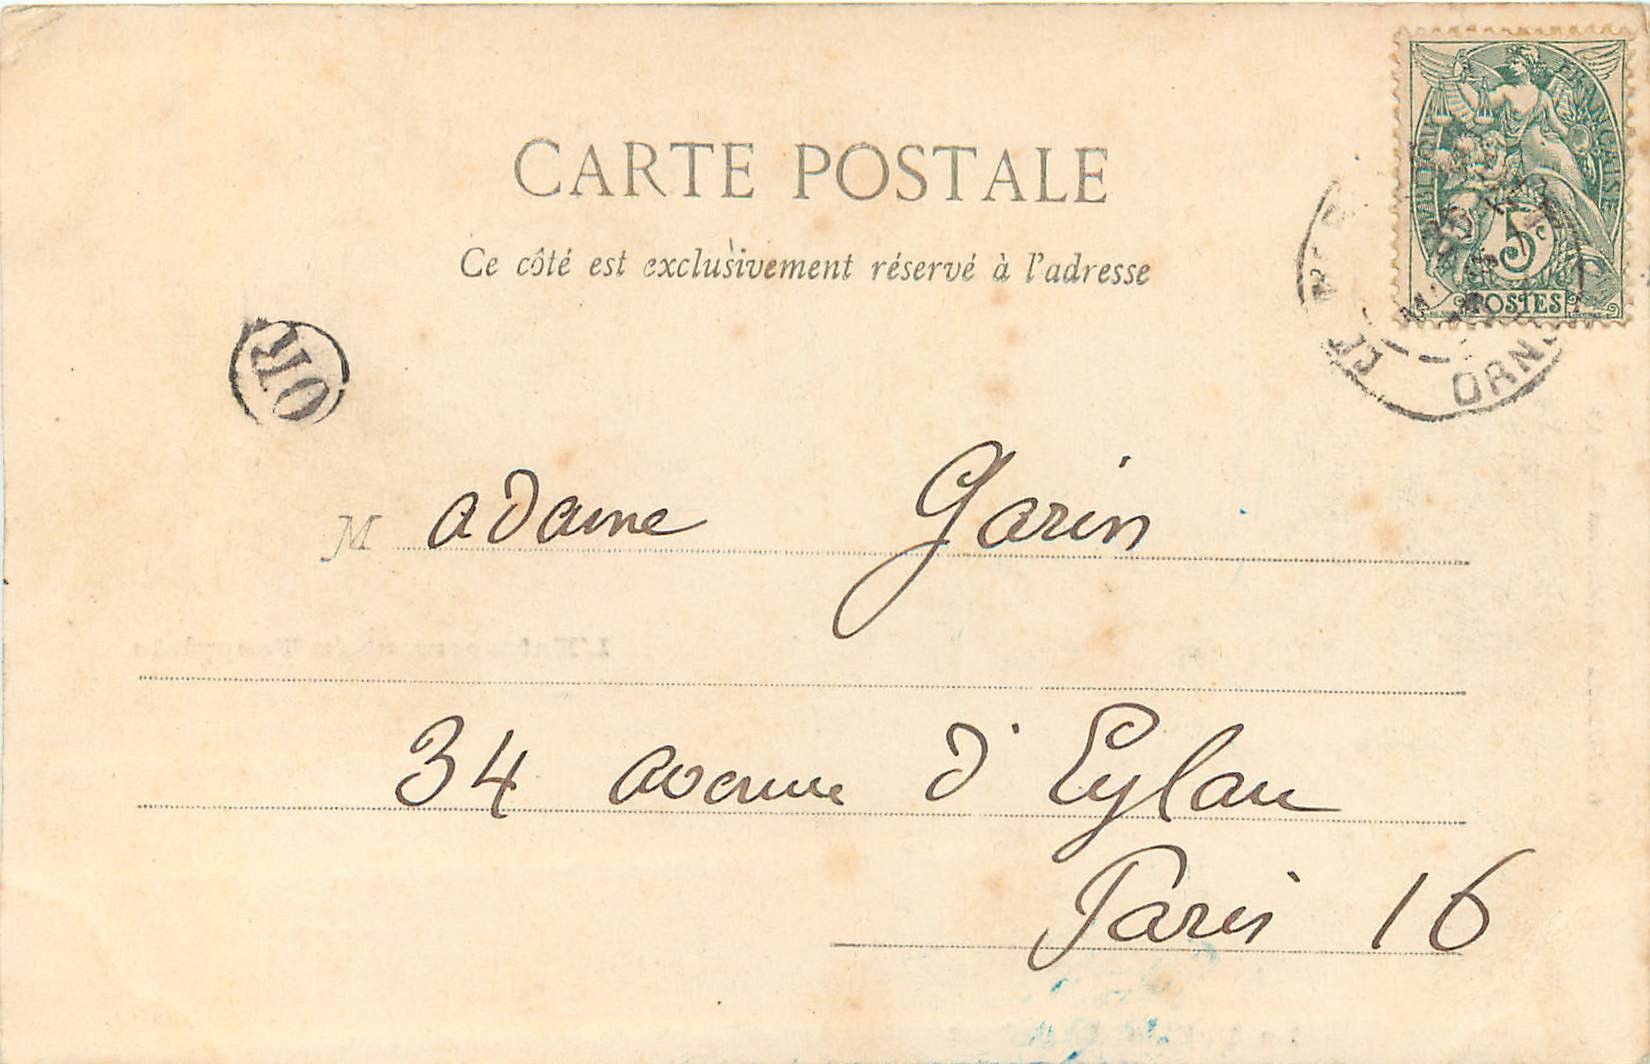 CARTE POSTALE
Ce côté est exclusivement réservé à l'adresse
RÉPUBLIQUE FRANÇAISE
5c
POSTES
ORNE
OR
Madame Garin
34 avenue d'Eylau
Paris 16